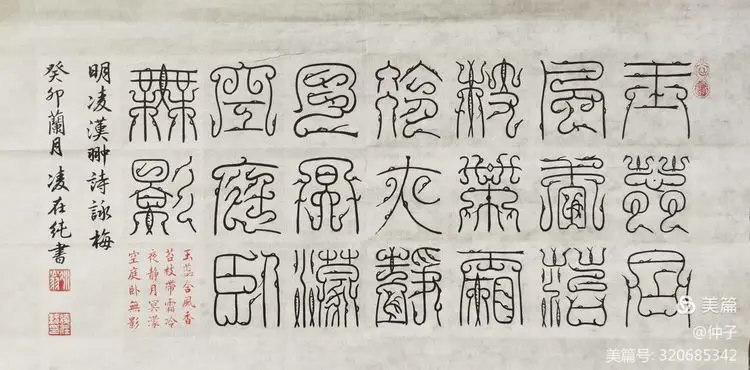 玉蕊含
風香苔
枝帶霜
冷夜靜
月冥濛
空庭卧
無影
玉蕊含風香
苔枝帶霜冷
夜靜月冥濛
空庭卧無影
明凌漢翀詩詠梅
癸卯蘭月凌在純書
美篇
@仲子
美篇号: 320685342